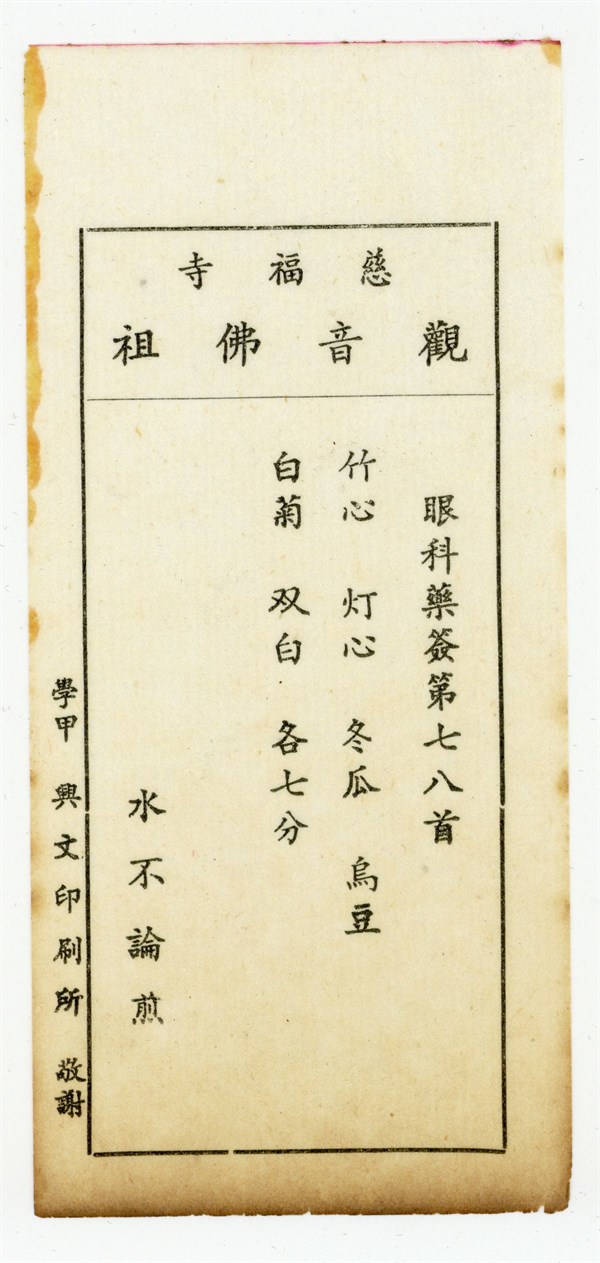 慈福寺
觀音佛祖
眼科藥簽第七八首
竹心 灯心 冬瓜 烏豆
白菊 双白 各七分
水不論煎
學甲 興文印刷所 敬謝